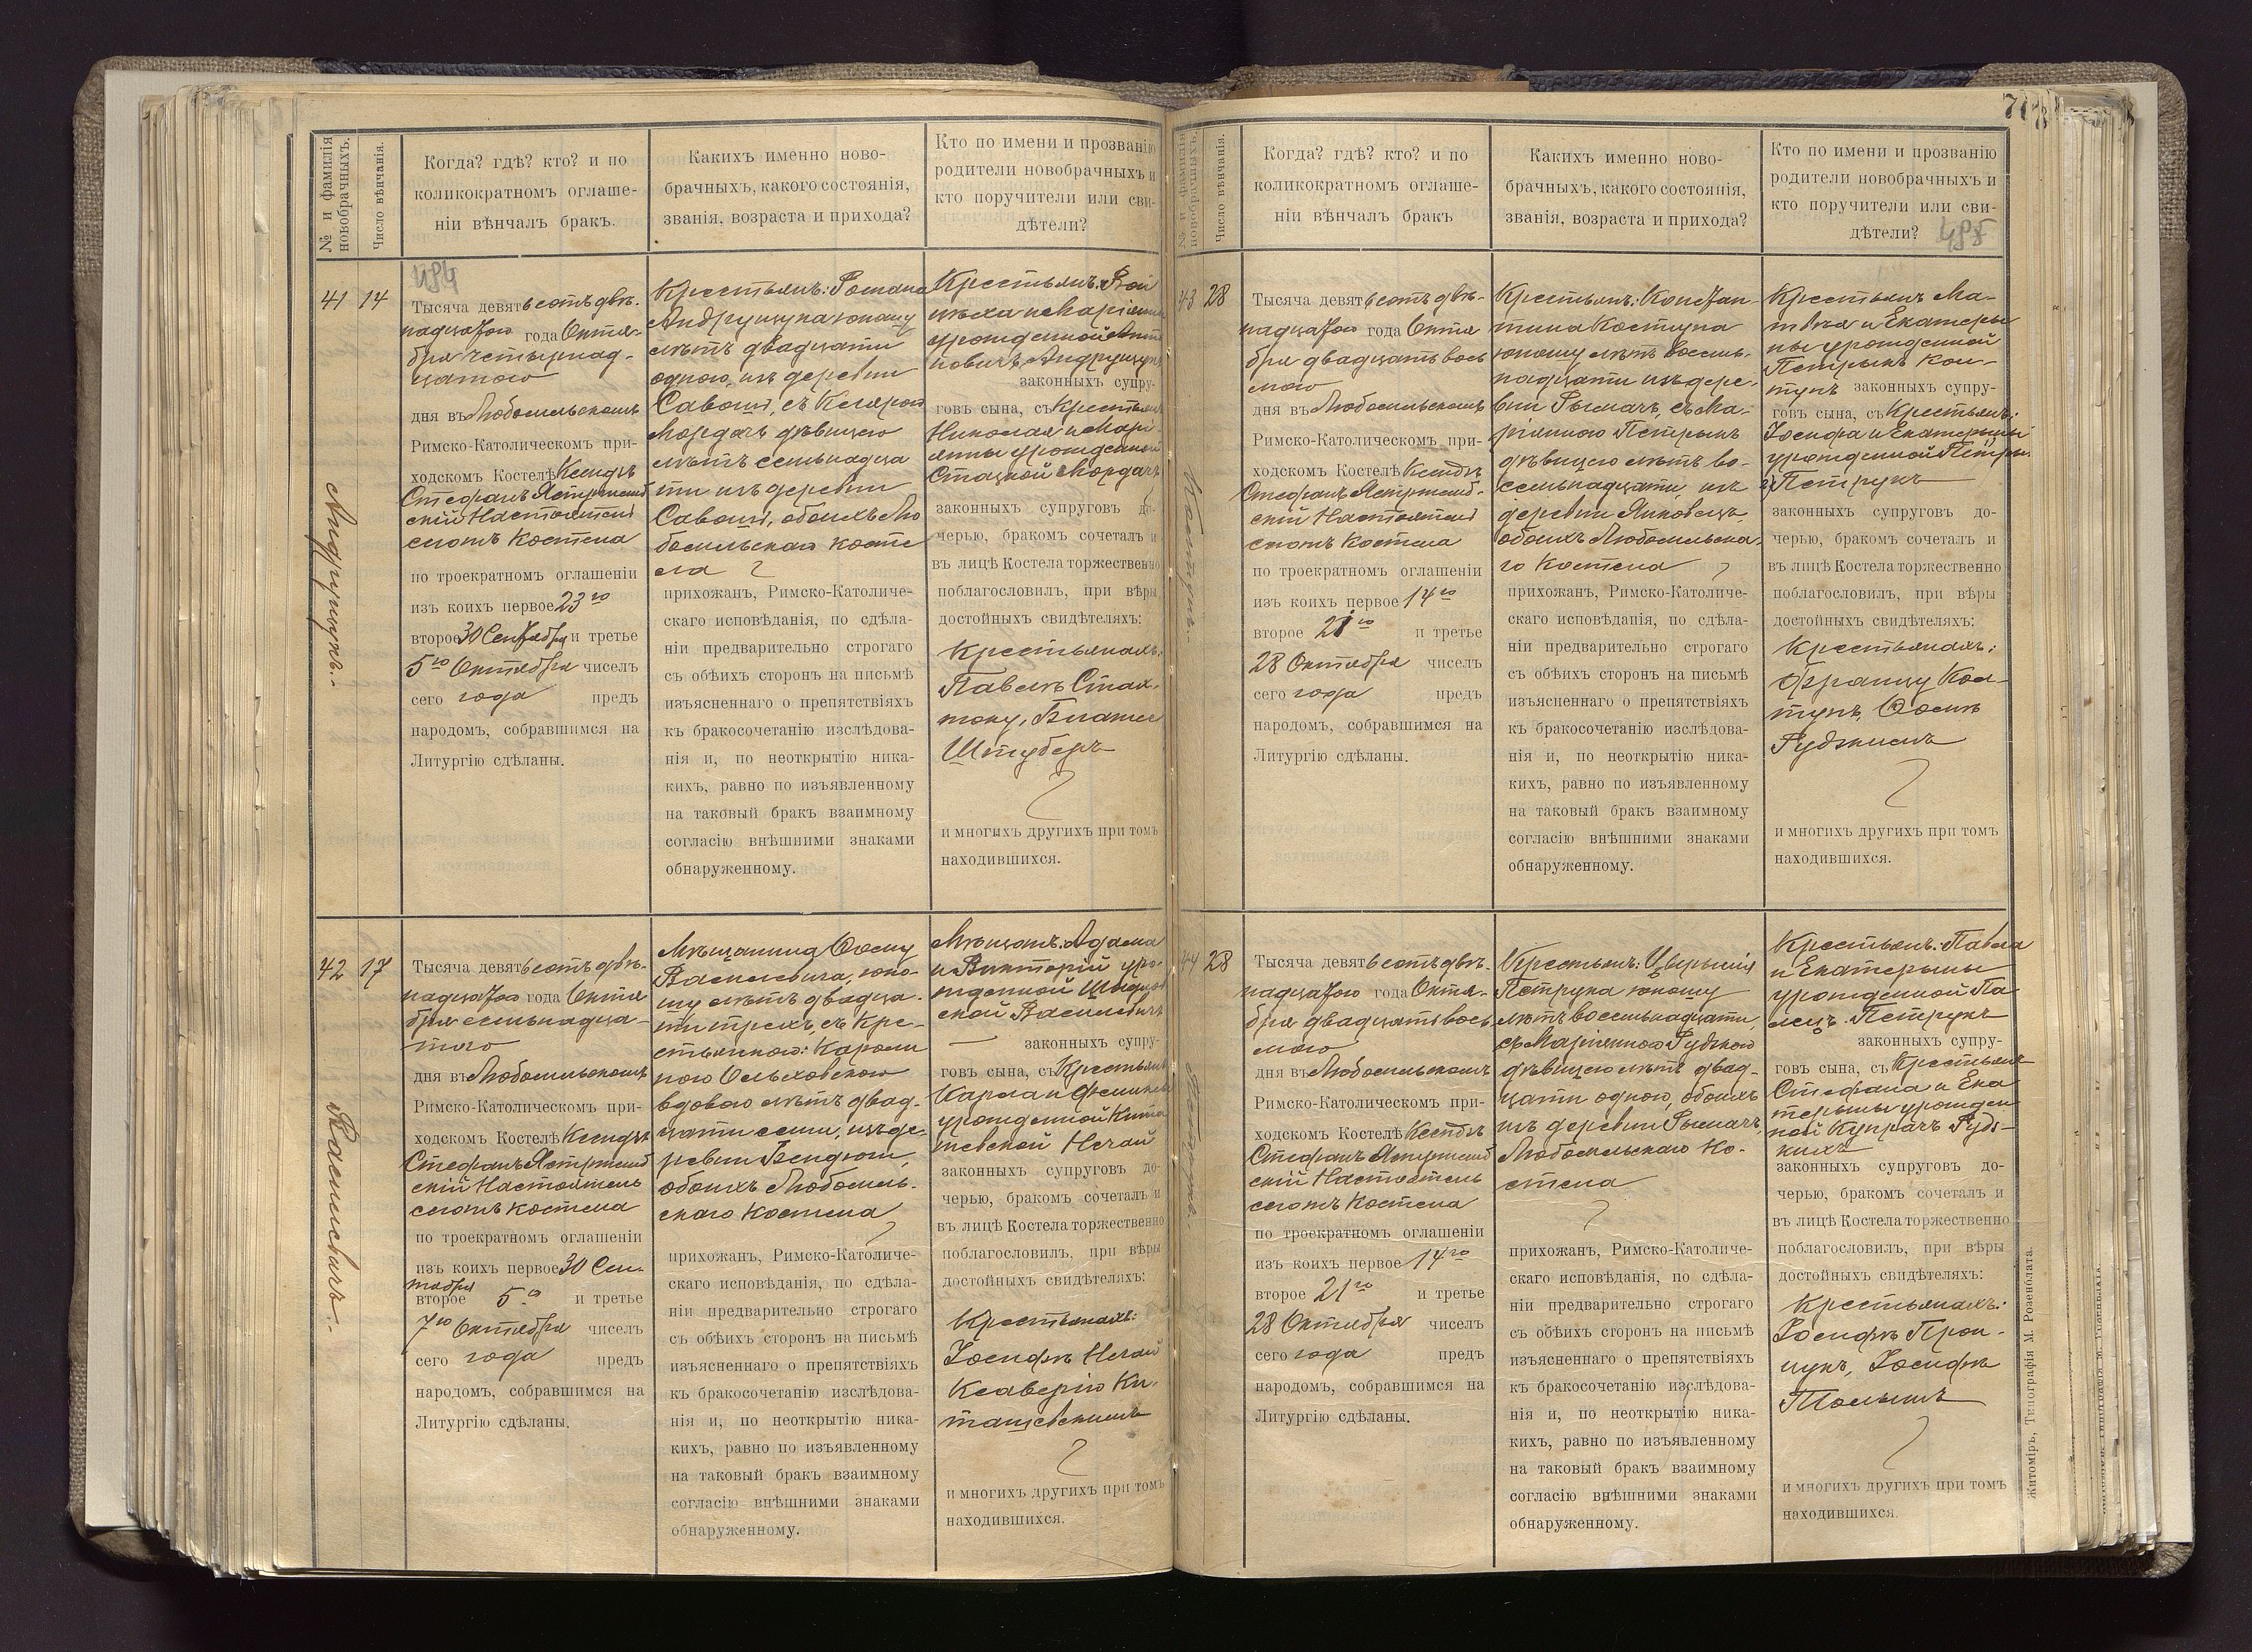 № и фамилія новобрачныхъ.
Число вѣнчанія.
Когда? гдѣ? кто? и по
коликократномъ оглаше-
ніи вѣнчалъ бракъ.
Какихъ именно ново-
брачныхъ, какого состоянія,
званія, возраста и прихода?
Кто по имени и прозванію
родители новобрачныхъ и
кто поручители или сви-
дѣтели?
484
41
14
Андрущукъ.-
Тысяча девятьсотъ двѣ-
надцатого года Октя-
бря четырнад-
цатого
дня въ Любомльскомъ
Римско-Католическомъ при-
ходскомъ Костелѣ Ксендзъ
Стефанъ Ястржемб
скій Настоятель
сего Костела
по троекратномъ оглашеніи
изъ коихъ первое 23го
второе 30 Сентября и третье
5го Октября чиселъ
сего года предъ
народомъ, собравшимся на
Литургію сдѣланы.
Крестьянъ: Романа
Андрущука юношу
лѣтъ двадцати
одного, изъ деревни
съ
Мордачъ дѣвицею
лѣтъ семьнадца
ти изъ деревни
обоихъ Лю
бомльскаго косте
ла
прихожанъ, Римско-Католиче-
скаго исповѣданія, по сдѣла-
ніи предварительно строгаго
съ обѣихъ сторонъ на письмѣ
изъясненнаго о препятствіяхъ
къ бракосочетанію изслѣдова-
нія и, по неоткрытію ника-
кихъ, равно по изъявленному
на таковый бракъ взаимному
согласію внѣшними знаками
обнаруженному.
Крестьянъ: Вой
цѣха и Маріанны
урожденной
Андрущукъ
законныхъ супру-
говъ сына, съ Крестьянъ
Николая и Марі
янны урожденной
Мордачъ
законныхъ супруговъ до-
черью, бракомъ сочеталъ и
въ лицѣ Костела торжественно
поблагословилъ, при вѣры
достойныхъ свидѣтеляхъ:
Крестьянахъ:
Павелъ
Штуберъ
и многихъ другихъ при томъ
находившихся.
42
17
Василевичъ.-
Тысяча девятьсотъ двѣ-
надцатого года Октя
бря семьнадца-
того
дня въ Любомльскомъ
Римско-Католическомъ при-
ходскомъ Костелѣ Ксендзъ
Стефанъ Ястржемб
скій Настоятель
сего Костела
по троекратномъ оглашеніи
изъ коихъ первое 30 Сен-
тября
второе 5го и третье
7го Октября чиселъ
сего года предъ
народомъ, собравшимся на
Литургію сдѣланы.
Мѣщанина Осипу
Василевича, юно-
шу лѣтъ двадца-
ти трехъ, съ Кре-
стьянкою: Кароли
ною Ольховскою
вдовою лѣтъ двад-
цати семи, изъ де-
ревни
обоихъ Любомль-
скаго Костела
прихожанъ, Римско-Католиче-
скаго исповѣданія, по сдѣла-
ніи предварительно строгаго
съ обѣихъ сторонъ на письмѣ
изъясненнаго о препятствіяхъ
къ бракосочетанію изслѣдова-
нія и, по неоткрытію ника-
кихъ, равно по изъявленному
на таковый бракъ взаимному
согласію внѣшними знаками
обнаруженному.
Мѣщанъ: Адама
и Викторіи уро-
жденной
Василевичъ
законныхъ супру-
говъ сына, съ Крестьянъ
Карла и
урожденной
Нечай
законныхъ супруговъ до-
черью, бракомъ сочеталъ и
въ лицѣ Костела торжественно
поблагословилъ, при вѣры
достойныхъ свидѣтеляхъ:
Крестьянахъ:
Іосифъ Нечай
Ксаверію Ки-
ташевскимъ
и многихъ другихъ при томъ
находившихся.
№ и фамилія новобрачныхъ.
Число вѣнчанія.
Когда? гдѣ? кто? и по
коликократномъ оглаше-
ніи вѣнчалъ бракъ
Какихъ именно ново-
брачныхъ, какого состоянія,
званія, возраста и прихода?
Кто по имени и прозванію
родители новобрачныхъ и
кто поручители или сви-
дѣтели?
485
43
28
Тысяча девятьсотъ двѣ-
надцатого года Октя
бря двадцать вось
мого
дня въ Любомльскомъ
Римско-Католическомъ при-
ходскомъ Костелѣ Ксендзъ
Стефанъ Ястржемб-
скій Настоятель
сего Костела
по троекратномъ оглашеніи
изъ коихъ первое 14го
второе 21го и третье
28 Октября чиселъ
сего года предъ
народомъ, собравшимся на
Литургію сдѣланы.
Крестьянъ: Констан-
тина Колтуна
юношу лѣтъ восемь-
надцати изъ дере-
вни Рымачъ, съ Ма-
ріянною Петрукъ
дѣвицею лѣтъ во-
семьнадцати, изъ
деревни
обоихъ Любомльска-
го Костела
прихожанъ, Римско-Католиче-
скаго исповѣданія, по сдѣла-
ніи предварительно строгаго
съ обѣихъ сторонъ на письмѣ
изъясненнаго о препятствіяхъ
къ бракосочетанію изслѣдова-
нія и, по неоткрытію ника-
кихъ, равно по изъявленному
на таковый бракъ взаимному
согласію внѣшними знаками
обнаруженному.
Крестьянъ Ма-
твѣя и Екатери
ны урожденной
Петрукъ Кол-
тунъ законныхъ супру-
говъ сына, съ Крестьянъ:
Іосифа и Екатерины
урожденной
Петрукъ
законныхъ супруговъ до-
черью, бракомъ сочеталъ и
въ лицѣ Костела торжественно
поблагословилъ, при вѣры
достойныхъ свидѣтеляхъ:
Крестьянахъ:
Францу Кол-
тунъ, Осипъ
и многихъ другихъ при томъ
находившихся.
44
28
Петрукъ.
Тысяча девятьсотъ двѣ-
надцатого года Октя-
бря двадцать вось
мого
дня въ Любомльскомъ
Римско-Католическомъ при-
ходскомъ Костелѣ Ксендзъ
Стефанъ Ястржемб
скій Настоятель
сего Костела
по троекратномъ оглашеніи
изъ коихъ первое 14го
второе 21го и третье
28 Октября чиселъ
сего года предъ
народомъ, собравшимся на
Литургію сдѣланы.
Крестьянъ:
Петрука юношу
лѣтъ восемьнадцати,
съ Маріянною Рудзкою
дѣвицею лѣтъ двад-
цати одного, обоихъ
изъ деревни Рымачъ,
Любомльскаго Ко-
стела
прихожанъ, Римско-Католиче-
скаго исповѣданія, по сдѣла-
ніи предварительно строгаго
съ обѣихъ сторонъ на письмѣ
изъясненнаго о препятствіяхъ
къ бракосочетанію изслѣдова-
нія и, по неоткрытію ника-
кихъ, равно по изъявленному
на таковый бракъ взаимному
согласію внѣшними знаками
обнаруженному.
Крестьянъ: Павла
и Екатерины
урожденной Па
лецъ Петрукъ
законныхъ супру-
говъ сына, съ Крестьянъ
Стефана и Ека
терины урожден
ной Купрачъ Рудз-
кихъ
законныхъ супруговъ до-
черью, бракомъ сочеталъ и
въ лицѣ Костела торжественно
поблагословилъ, при вѣры
достойныхъ свидѣтеляхъ:
Крестьянахъ:
Іосифъ
Іосифъ
и многихъ другихъ при томъ
находившихся.
Житоміръ, Типографія М. Розенблата.